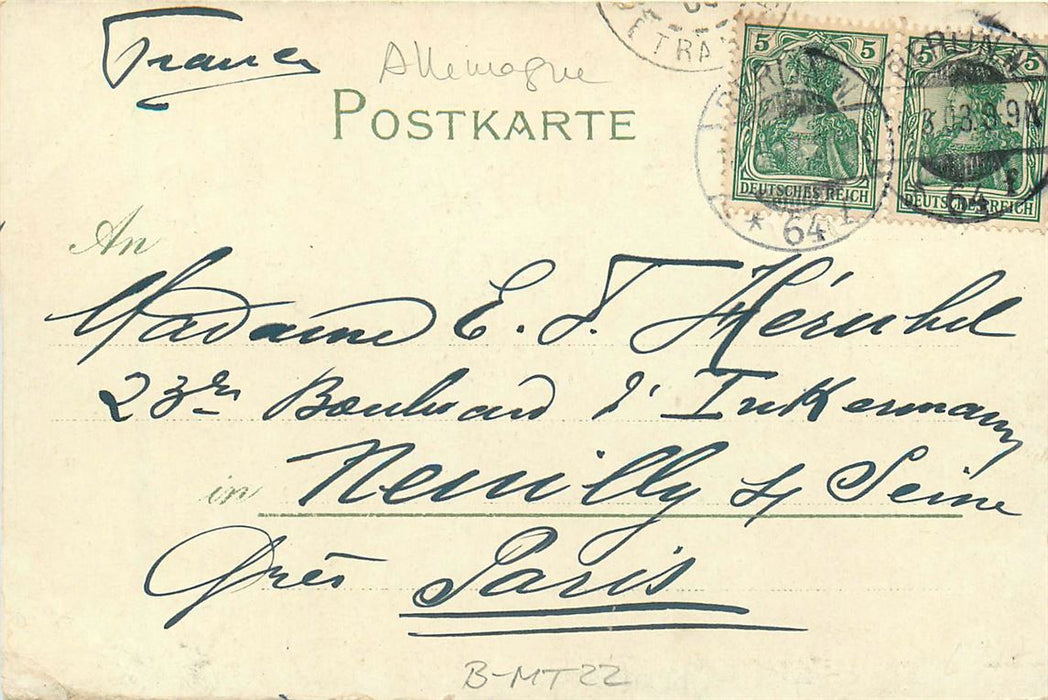 France
Allemagne
POSTKARTE
ETRA
5 5
BERLIN N.
DEUTSCHES REICH
* 64 f
5
BERLIN N.
8.03.8-9N
DEUTSCHES REICH
* 64 f
An
Madame E. F.
23 Boulevard d'Inkermann
in Neuilly s/ Seine
Près Paris
B-MT22